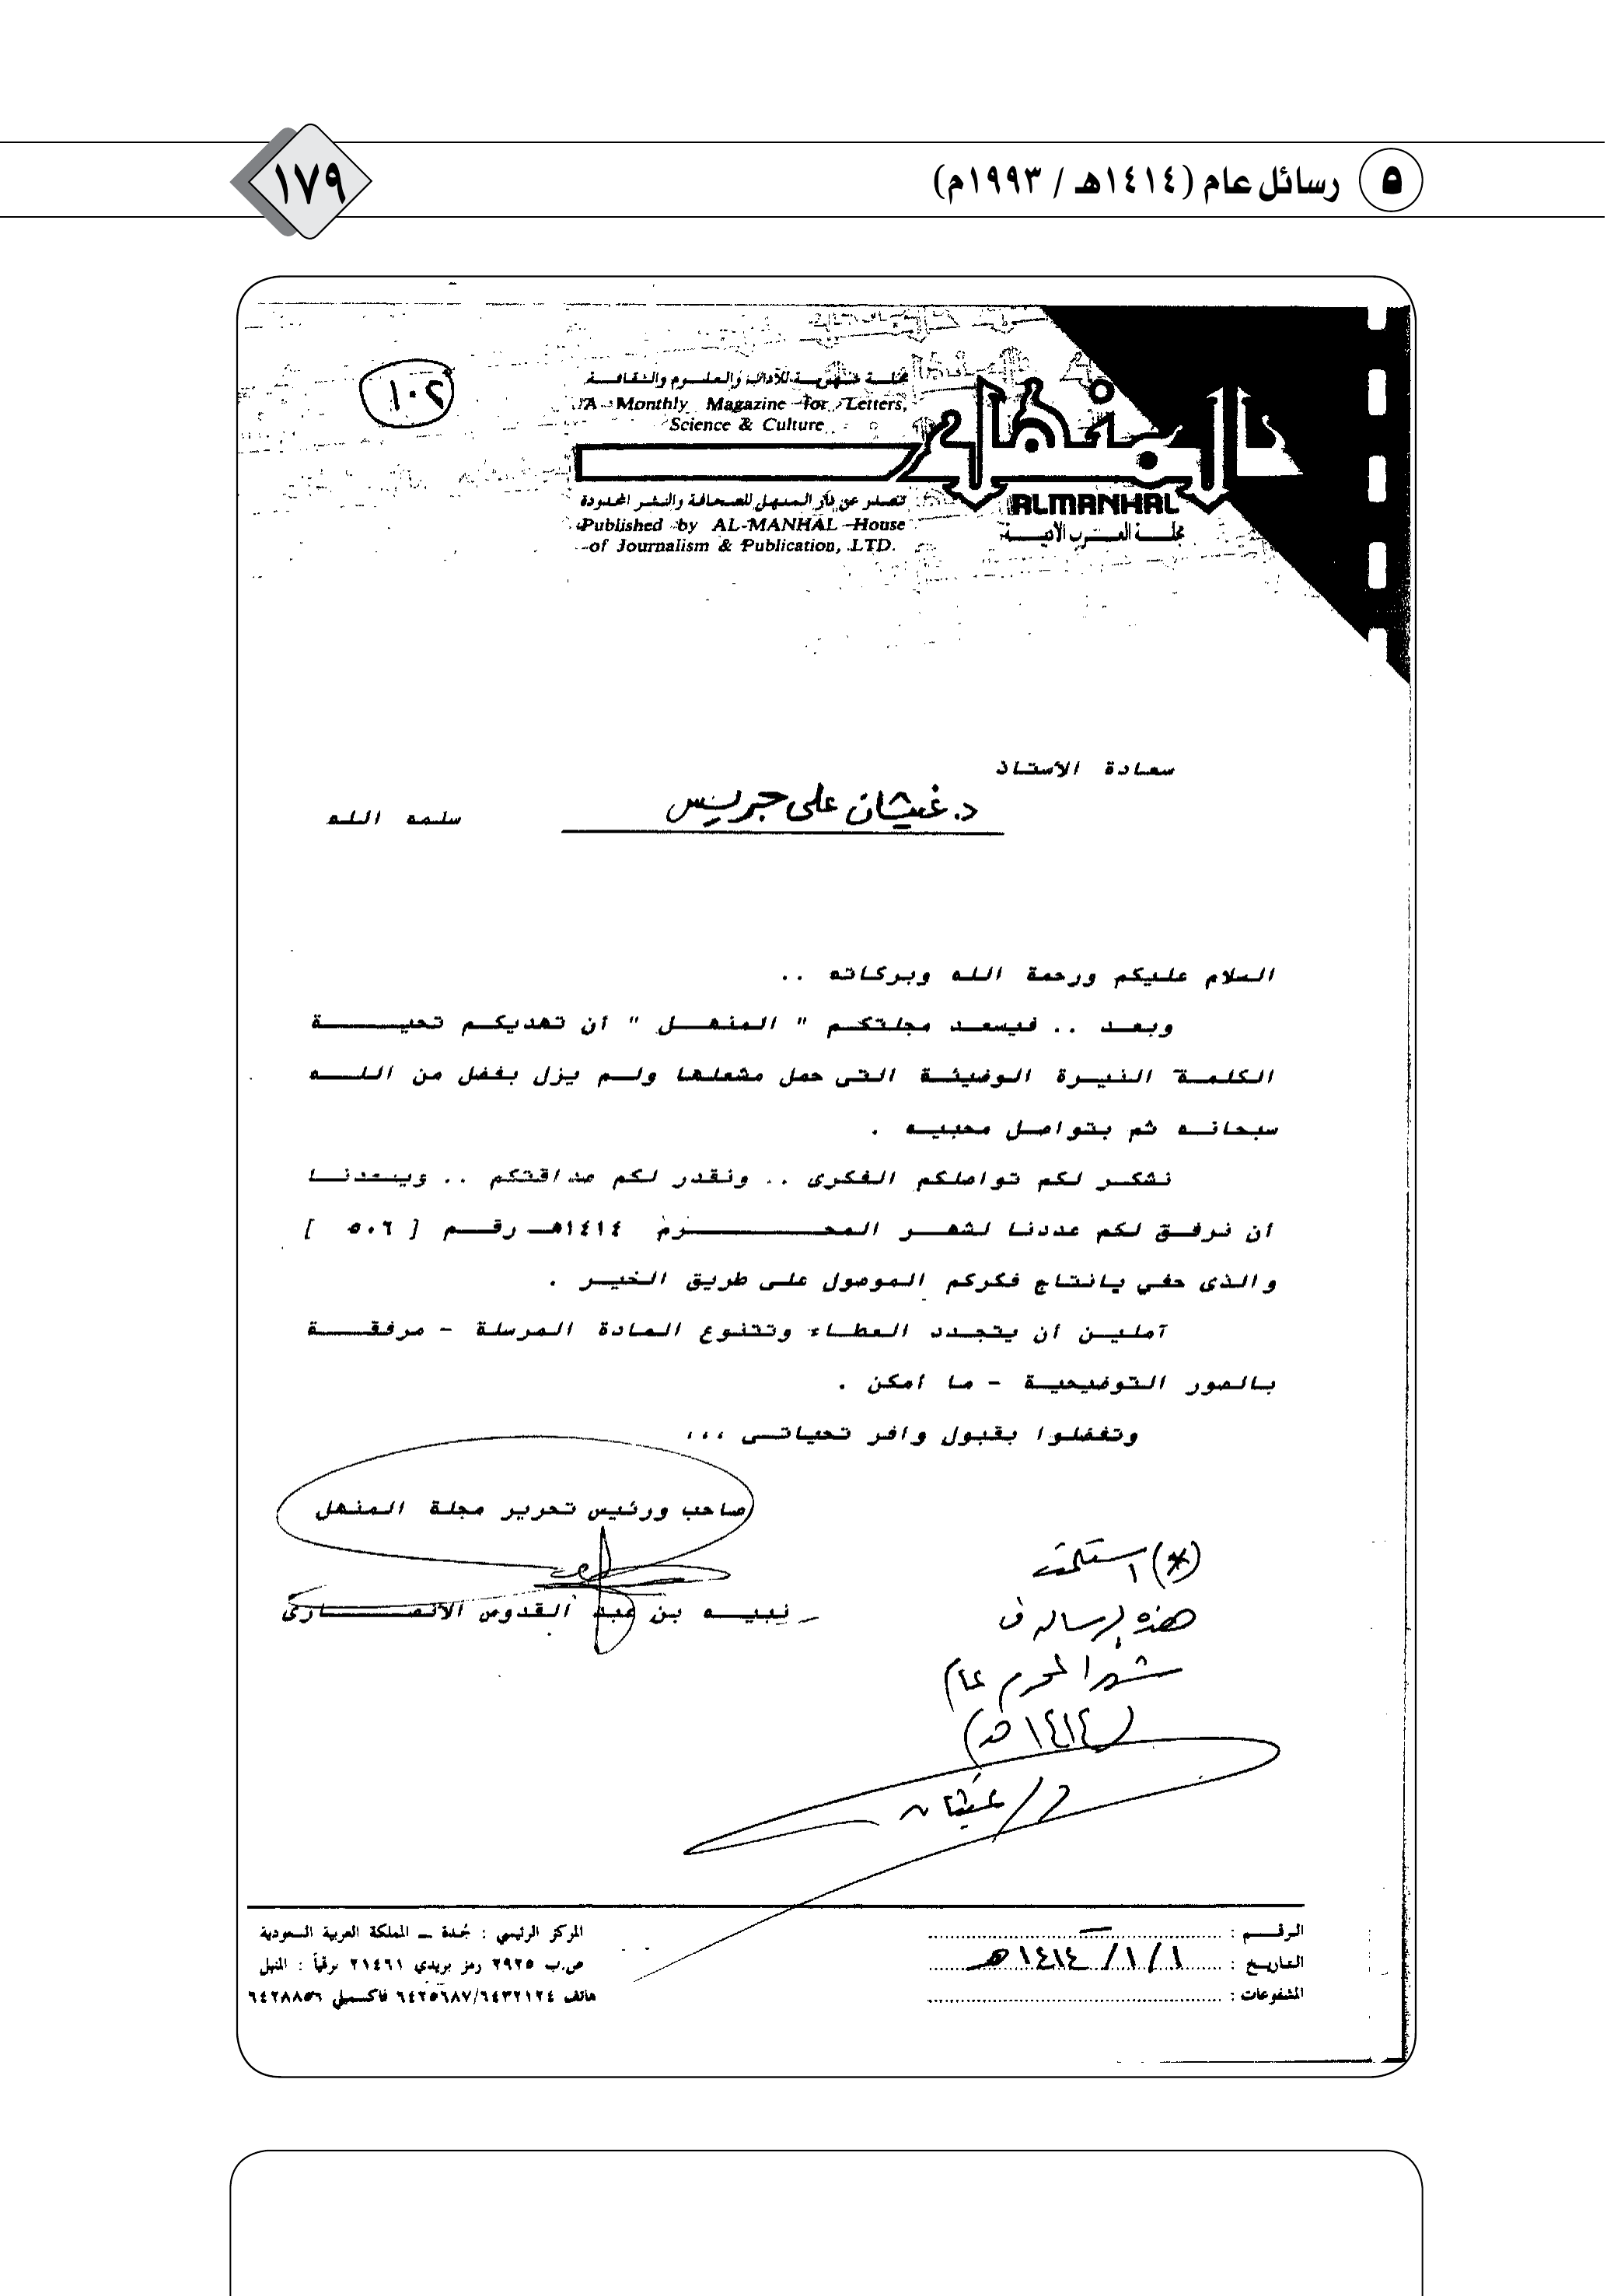 ٥ رسائل عام (١٤١٤هـ / ١٩٩٣م)
١٧٩
١٠٢
مجلـة شهريـة للآداب والعلـوم والثقافـة
A Monthly Magazine for Letters,
Science & Culture
المنهل
تصدر عن دار المنهل للصحافة والنشر المحدودة
Published by AL-MANHAL House
of Journalism & Publication, LTD.
ALMANHAL
مجلـة العـرب الأدبيـة
سعادة الأستاذ
د. غيثان على جريس
سلمه الله
السلام عليكم ورحمة الله وبركاته ..
وبعد .. فيسعد مجلتكم " المنهل " أن تهديكم تحية
الكلمة النيرة الوضيئة التى حمل مشعلها ولم يزل بفضل من الله
سبحانه ثم بتواصل محبيه .
نشكر لكم تواصلكم الفكرى .. ونقدر لكم صداقتكم .. ويسعدنا
أن نرفق لكم عددنا لشهر المحرم ١٤١٤هـ رقم [ ٥٠٦ ]
والذى حفي بإنتاج فكركم الموصول على طريق الخير .
آملين أن يتجدد العطاء وتتنوع المادة المرسلة - مرفقة
بالصور التوضيحية - ما أمكن .
وتفضلوا بقبول وافر تحياتى ،،،
صاحب ورئيس تحرير مجلة المنهل
نبيه بن عبد القدوس الأنصارى
(*) استلمت
هذه الرسالة في
شهر المحرم عام
(١٤١٤هـ)
د/ غيثان
الرقـم :
التاريخ : ١/١/١٤١٤هـ
المشفوعات :
المركز الرئيسي : جُدة ــ المملكة العربية السعودية
ص.ب ٢٩٢٥ رمز بريدي ٢١٤٦١ برقياً : المنهل
هاتف ٦٤٣٢١٢٤/٦٤٢٥٦٨٧ فاكسميلي ٦٤٢٨٨٥٦